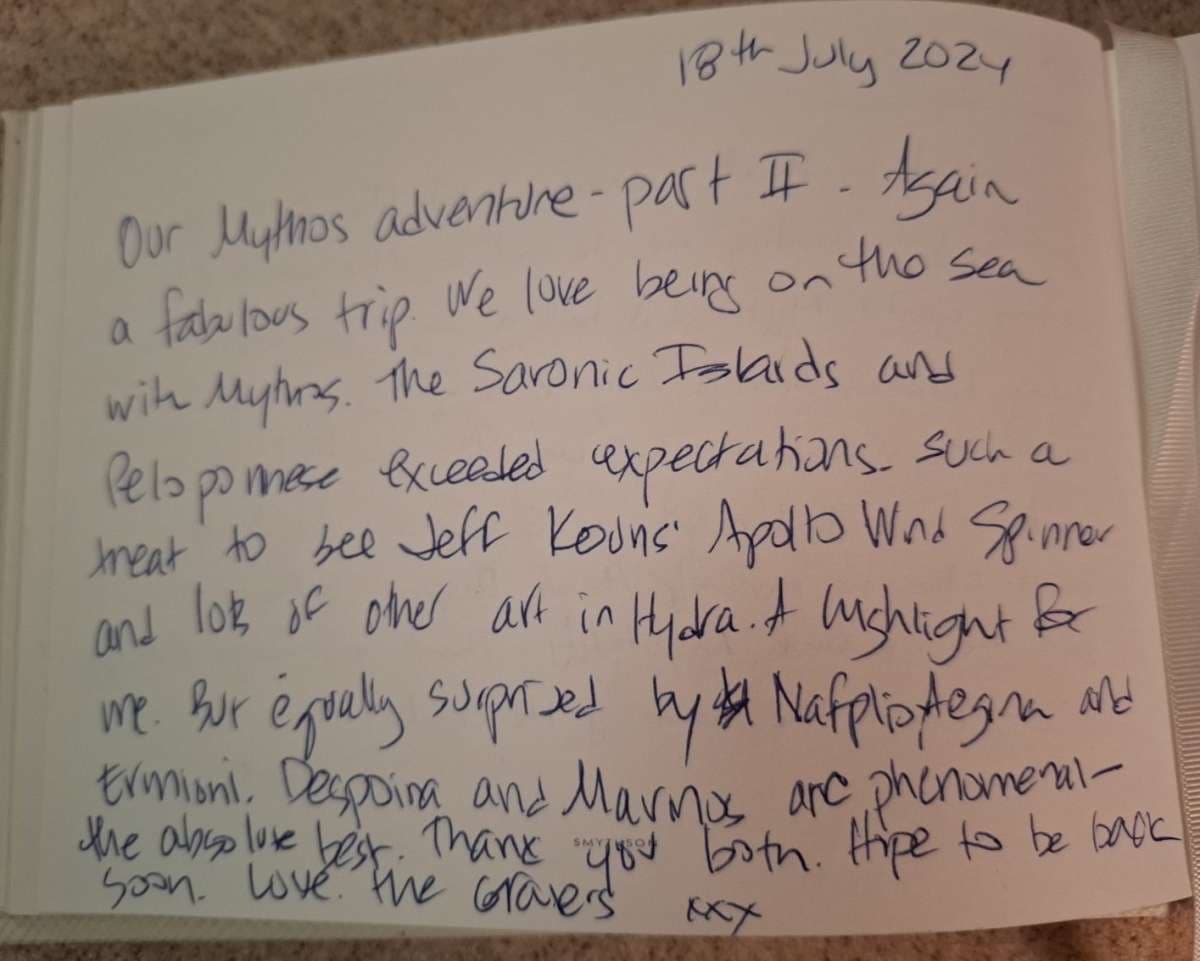 18th July 2024
Our Mythos adventure - part II - Again
a fabulous trip. We love being on the sea
with Mythos. The Saronic Islands and
Peloponnese exceeded expectations. Such a
treat to see Jeff Koons' Apollo Wind Spinner
and lots of other art in Hydra. A highlight for
me. But equally surprised by Nafplio, Aegina and
Ermioni. Despoina and Marinos are phenomenal -
the absolute best. Thank you both. Hope to be back
SMYTHSON
soon. Love. The Gravers xxx